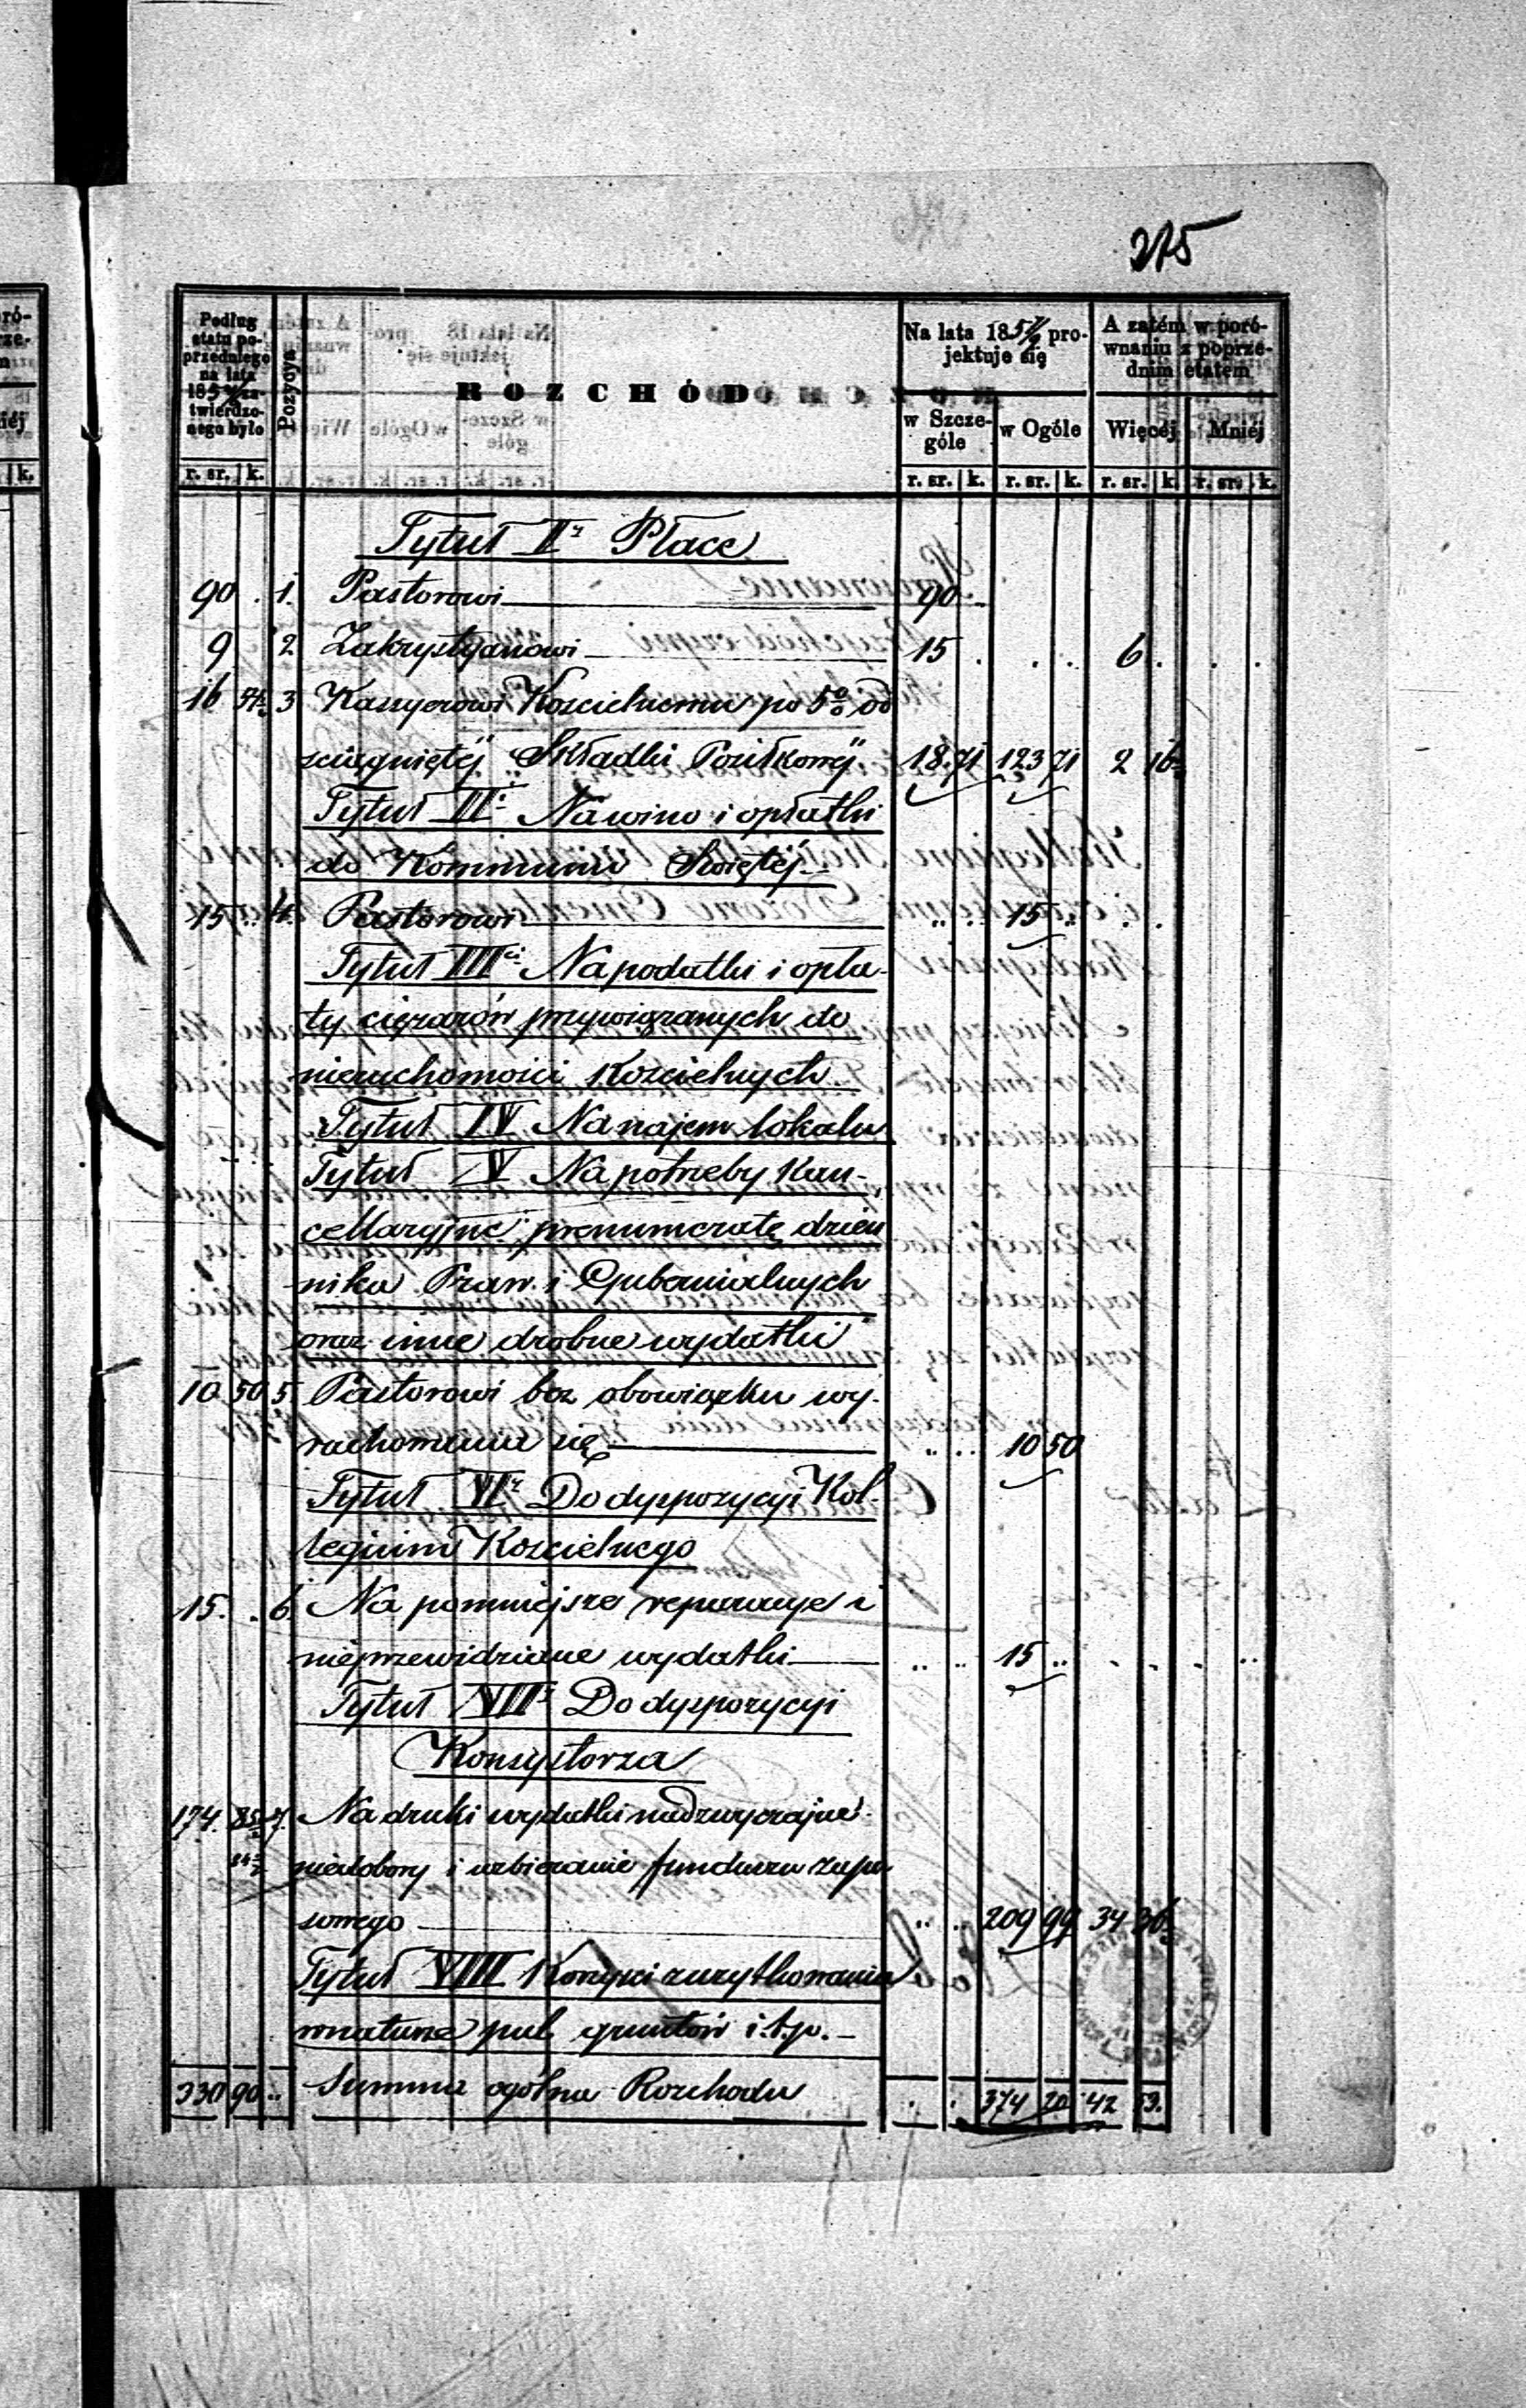 275
Podług etatu poprzedniego na lata 185 zatwierdzonego było
Pozycya
ROZCHÓD
Na lata 185 7/9 projektuje się
A zatém w porównaniu z poprzednim etatem
w Szczególe
w Ogóle
Więcéj
Mniéj
r. sr. k. r. sr. k. r. sr. k. r. sr. k. r. sr. k.
Tytuł I Płace
90 . 1. Pastorowi 90 . _
9 2 Zakrystyanowi 15 . . . . 6 . . .
16 3 Kassyerowi Kościelnemu po 5% od
ściągniętéj Składki Posiłkowéj 18. 71 123 71 2 16
Tytuł II Na wino i opłatki
do Kommunii Świętéj
15 .. 4. Pastorowi .. .. 15 .. . .
Tytuł III Na podatki i opła-
ty ciężarów przywiązanych do
nieruchomości Kościelnych
Tytuł IV Na najem lokalu
Tytuł V Na potrzeby Kan-
cellaryjne prenumeratę dzien
nika Praw i Gubernialnych
oraz inne drobne wydatki
10 50 5 Pastorowi bez obowiązku wy-
rachowania się .. .. 10 50
Tytuł VI Do dyspozycyi Kol-
legium Kościelnego
15. . 6 Na pomniejsze reparacye i
nieprzewidziane wydatki .. .. 15 .. . . . ..
Tytuł VII Do dyspozycyi
Konsystorza
174. 7. Na druki wydatki nadzwyczajne
niedobory i uzbieranie funduszu zapa
sowego .. .. 209 99 34
Tytuł VIII Korzyści z użytkowania
w naturze pul gruntów i.t.p. _
330 90 .. Summa ogólna Rozchodu . . 374 20 42 53.